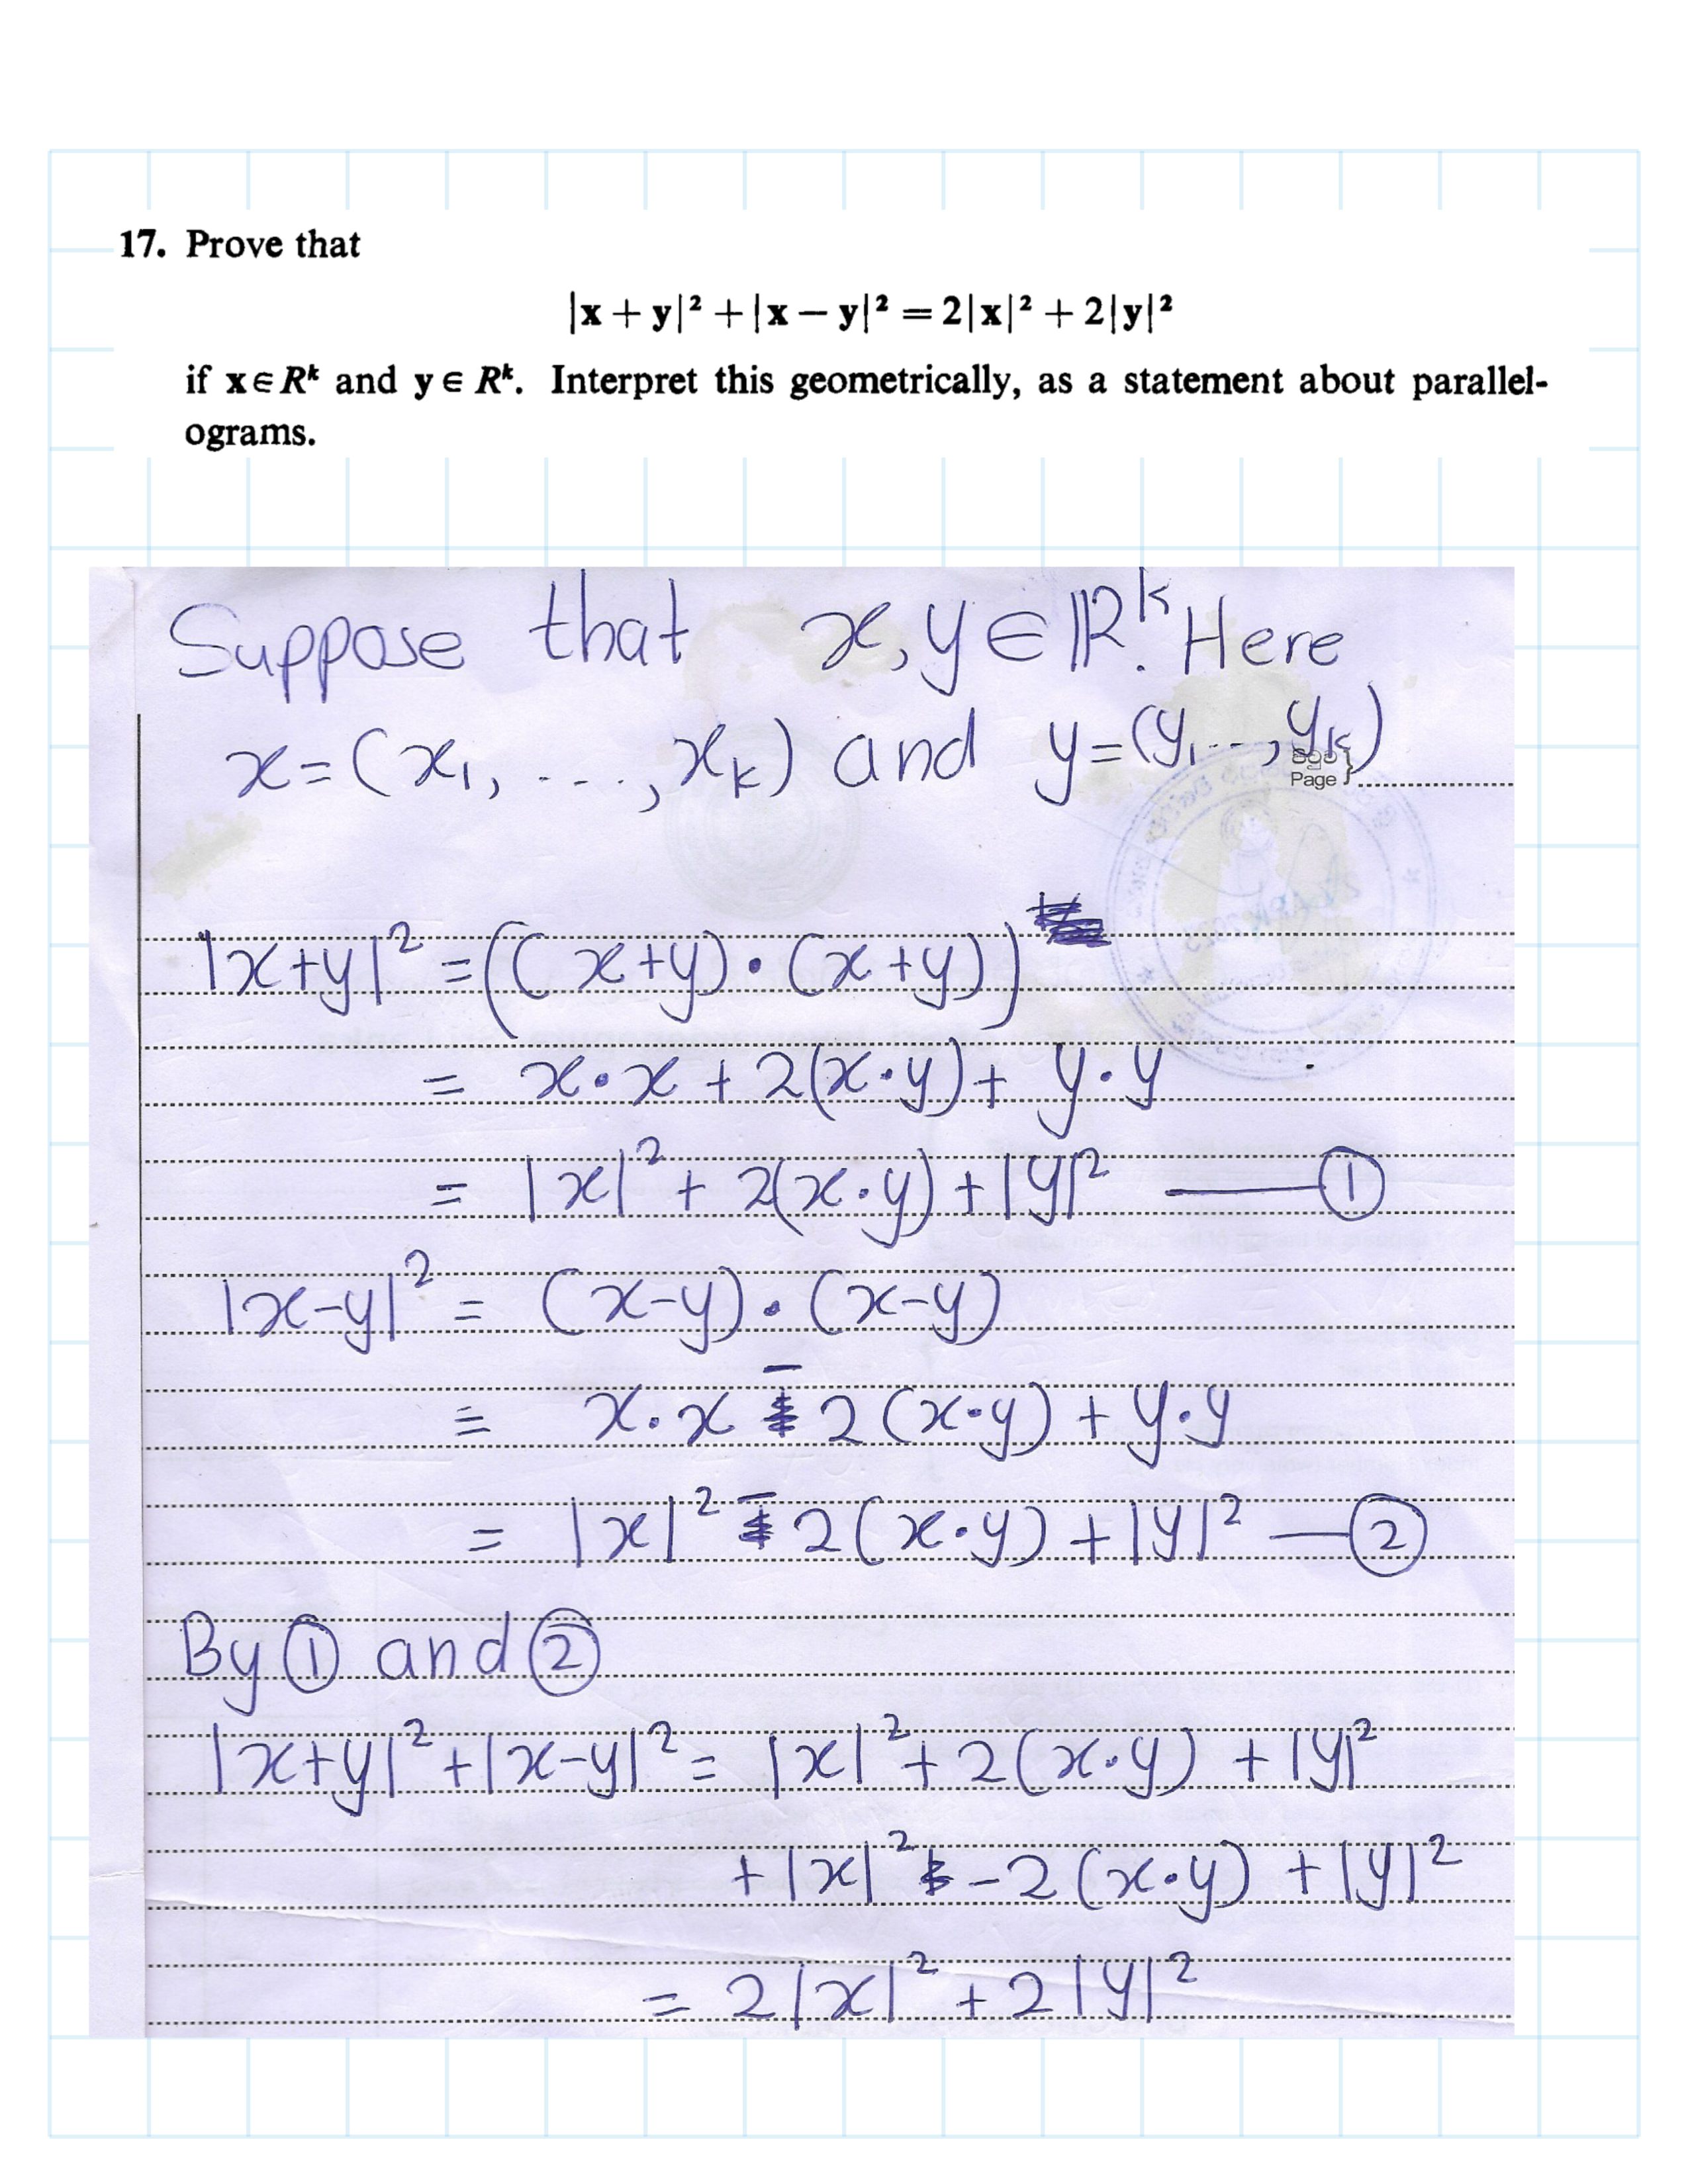 17. Prove that
|x + y|² + |x − y|² = 2|x|² + 2|y|²
if x ∈ Rᵏ and y ∈ Rᵏ. Interpret this geometrically, as a statement about parallel-
ograms.
Suppose that x, y ∈ ℝᵏ. Here
x = (x₁, ..., xₖ) and y = (y₁ ..., yₖ)
Page }
|x+y|² = ((x+y)·(x+y))
= x·x + 2(x·y) + y·y
= |x|² + 2(x·y) + |y|² —— ①
|x-y|² = (x-y)·(x-y)
= x·x - 2(x·y) + y·y
= |x|² - 2(x·y) + |y|² — ②
By ① and ②
|x+y|² + |x-y|² = |x|² + 2(x·y) + |y|²
+ |x|² - 2(x·y) + |y|²
= 2|x|² + 2|y|²